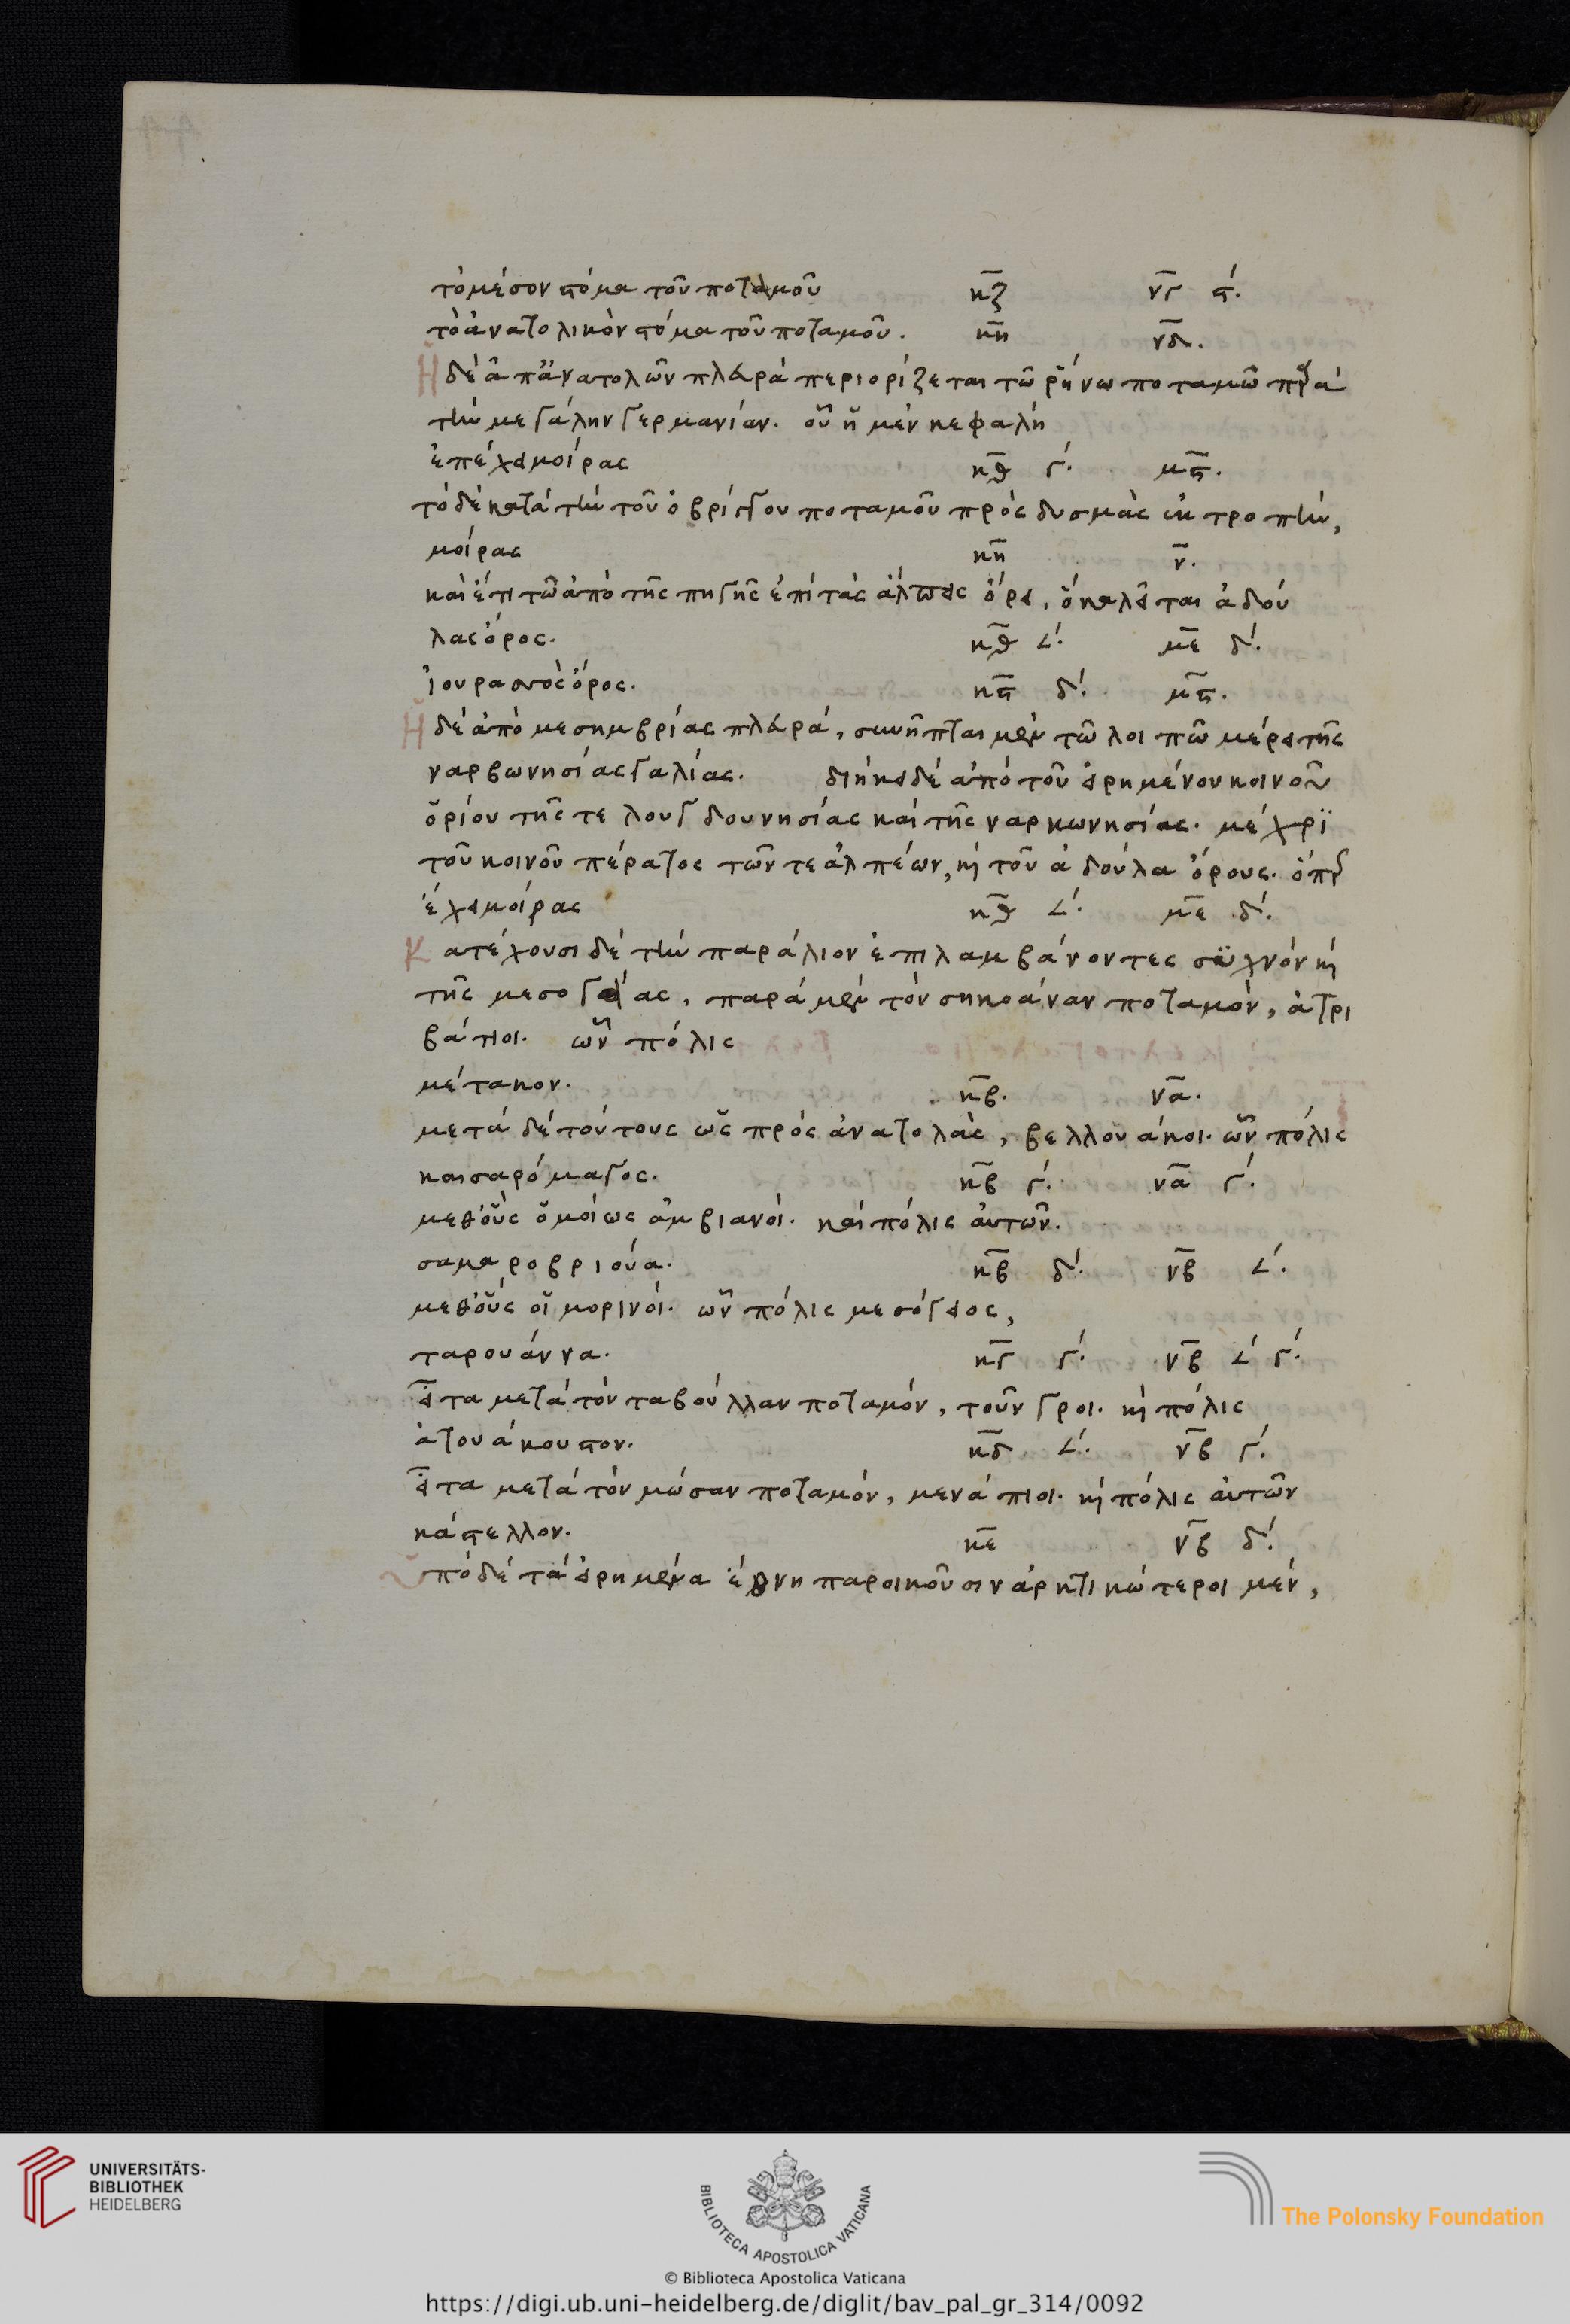 τὸ μέσον στόμα τοῦ ποταμοῦ κζ νγ ϛʹ.
τὸ ἀνατολικὸν στόμα τοῦ ποταμοῦ. κη νδ.
Ἡ δὲ ἀπ' ἀνατολῶν πλευρὰ περιορίζεται τῶ ῥήνω ποταμῶ παρὰ
τὴν μεγάλην γερμανίαν. οὗ ἡ μὲν κεφαλὴ
ἐπέχει μοίρας κθ γʹ. μϛ.
τὸ δὲ κατὰ τὴν τοῦ ὀβρίγγου ποταμοῦ πρὸς δυσμὰς ἐκτροπὴν,
μοίρας κη ν.
καὶ ἔτι τῶ ἀπὸ τῆς πηγῆς ἐπὶ τὰς ἄλπεις ὄρει, ὃ καλεῖται ἀδού
λας ὄρος. κθ 𐅵ʹ. με δʹ.
ἰουρασσὸς ὄρος. κϛ δʹ. μϛ.
Ἡ δὲ ἀπὸ μεσημβρίας πλευρά, συνῆπται μὲν τῶ λοιπῶ μέρει τῆς
ναρβωνησίας γαλίας. διήκει δὲ ἀπὸ τοῦ εἰρημένου κοινοῦ
ὁρίου τῆς τε λουγδουνησίας καὶ τῆς ναρκωνησίας. μέχρϊ
τοῦ κοινοῦ πέρατος τῶν τε ἀλπέων, κὴ τοῦ ἀδούλα ὄρους. ὅπερ
ἔχει μοίρας κθ 𐅵ʹ. με δʹ.
Κατέχουσι δὲ τὴν παράλιον ἐπιλαμβάνοντες σϋχνὸν κὴ
τῆς μεσογείας, παρὰ μὲν τὸν σηκοάναν ποταμὸν, ἀτρι
βάτιοι. ὧν πόλις
μέτακον. κβ. να.
μετὰ δὲ τούτους ὡς πρὸς ἀνατολὰς, βελλουάκοι. ὧν πόλις
καισαρόμαγος. κβ γʹ. να γʹ.
μεθ' οὓς ὁμοίως ἀμβιανοί. καὶ πόλις αὐτῶν.
σαμαροβριούα. κβ δʹ. νβ 𐅵ʹ.
μεθ' οὓς οἱ μορινοί. ὧν πόλις μεσόγειος,
ταρουάννα. κγ γʹ. νβ 𐅵ʹ γʹ.
εἶτα μετὰ τὸν ταβούλλαν ποταμόν, τοῦνγροι. κὴ πόλις
ἀτουάκουστον. κδ 𐅵ʹ. νβ γʹ.
εἶτα μετὰ τὸν μώσαν ποταμόν, μενάπιοι. κὴ πόλις αὐτῶν
κάστελλον. κε νβ δʹ.
ὑπὸ δὲ τὰ εἰρημένα ἔθνη παροικοῦσιν ἀρκτικώτεροι μέν,
UNIVERSITÄTS-
BIBLIOTHEK
HEIDELBERG
BIBLIOTECA APOSTOLICA VATICANA
The Polonsky Foundation
© Biblioteca Apostolica Vaticana
https://digi.ub.uni-heidelberg.de/diglit/bav_pal_gr_314/0092